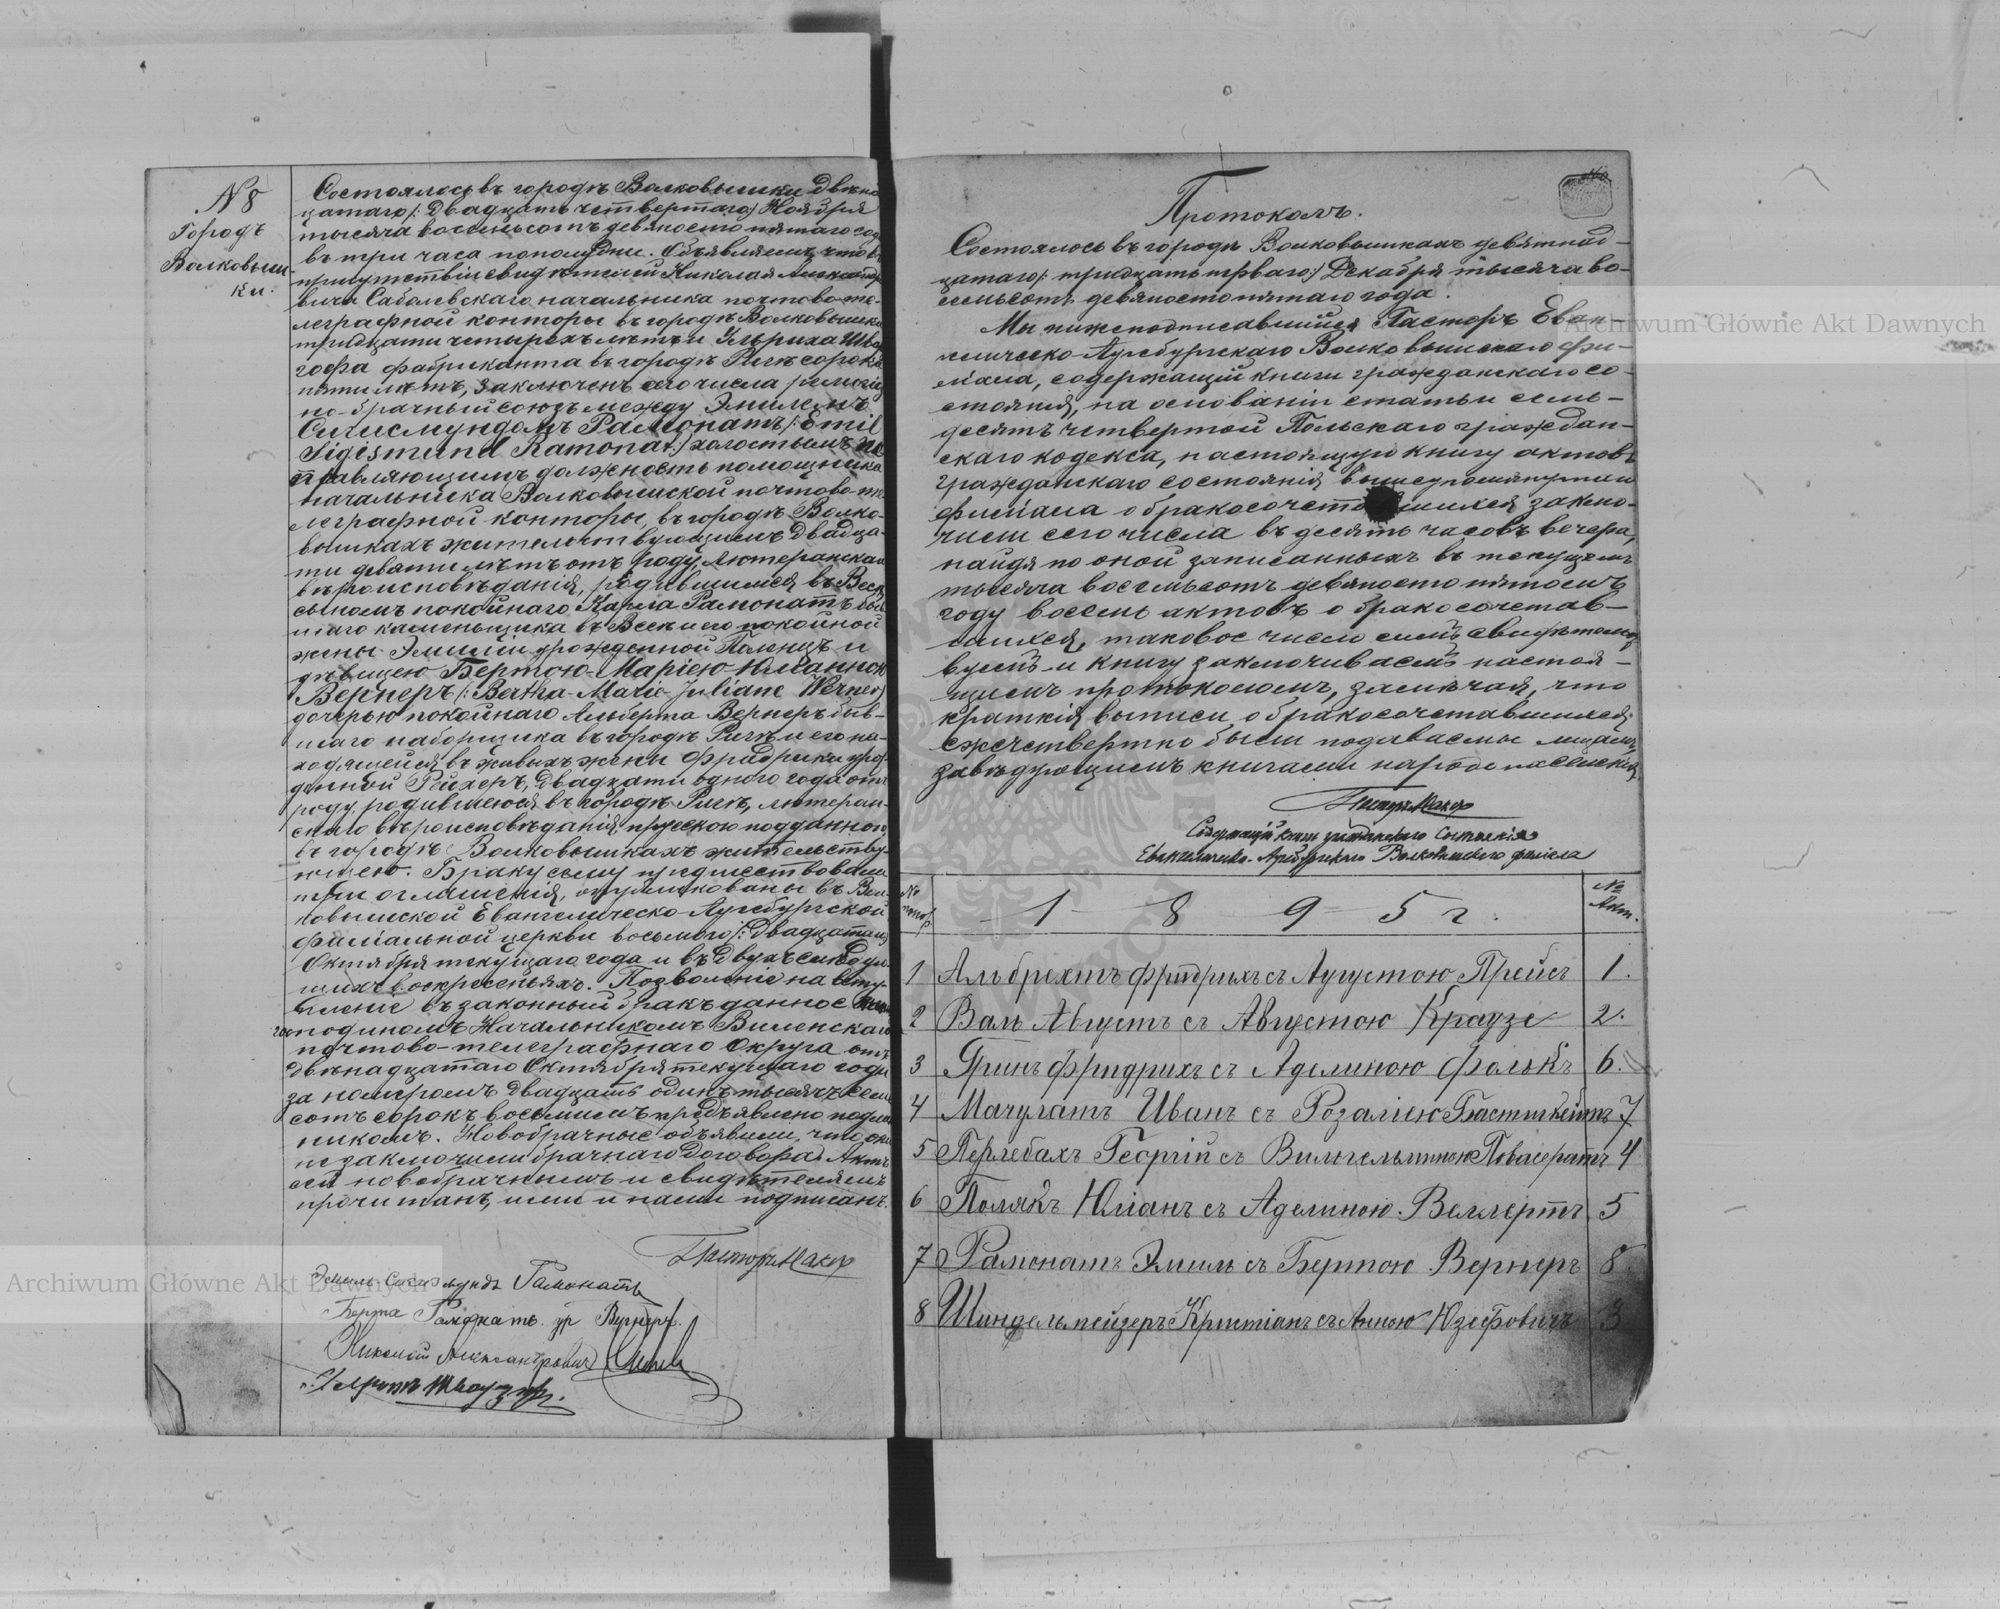 № 8
Городъ
Волковыш-
ки.
Состоялось въ городѣ Волковышки двѣна
цатаго /: двадцать четвертаго:/ Ноября
тысяча восемьсотъ девяносто пятаго го
въ три часа пополудни. Объявляемъ, что в
присутствіи свидѣтелей Николая Александро
вича Саболевскаго начальника почтово-те-
леграфной конторы въ городѣ Волковышка
тридцати четырехъ лѣтъ и Ульриха Шва
гофа фабриканта въ городѣ Ригѣ сорока
пяти лѣтъ, заключенъ сего числа религіоз
но-брачный союзъ между Эмилемъ
Сигисмундомъ Рамонатъ /: Emil
Sigismund Ramonat :/ холостымъ ис
правляющимъ должность помощника
начальника Волковышской почтово-те
леграфной конторы, въ городѣ Волко-
вышкахъ жительствующимъ двадца-
ти девяти лѣтъ отъ роду, лютеранскаго
вѣроисповѣданія, родившимся въ
сыномъ покойнаго Карла Рамонатъ быв
шаго каменьщика въ и его покойной
жены Эмиліи урожденной Поленцъ и
дѣвицею Бертою-Маріею-Юліанною
Вернеръ /: Bertha-Marie-Juliane Werner:/
дочерью покойнаго Альберта Вернеръ быв-
шаго наборщика въ городѣ Ригѣ и его на-
ходящейся въ живыхъ жены Фридрики урож
денной Рихеръ, двадцати одного года отъ
роду родившеюся въ городѣ Ригѣ, лютеран-
скаго вѣроисповѣданія, прусскою подданною
въ городѣ Волковышкахъ жительству-
ющею. Браку сему предшествовали
три оглашенія, опубликованы въ Вол-
ковышской Евангелическо-Аугсбургской
филіальной церкви восьмого /: двадцатаго:/
Октября текущаго года и въ двухъ слѣдую-
щихъ воскресеньяхъ. Позволеніе на всту-
пленіе въ законный бракъ данное
господиномъ Начальникомъ Виленскаго
почтово-телеграфнаго Округа отъ
двѣнадцатаго Октября текущаго года
за номеромъ двадцать одинъ тысячъ семь
сотъ сорокъ восьмымъ предъявлено подлин
никомъ. Новобрачные объявили, что они
не заключили брачнаго договора. Актъ
сей новобрачнымъ и свидѣтелямъ
прочитанъ, ими и нами подписанъ.
Эмиль Сигизмундъ Рамонатъ
Берта Рамонатъ ур Вернеръ.
Николай Александровичъ
Протоколъ.
Состоялось въ городѣ Волковышкахъ девятнад-
цатаго /: тридцать перваго:/ Декабря тысяча во-
семьсотъ девяносто пятаго года.
Мы нижеподписавшійся Пасторъ Еван-
гелическо-Аугсбургскаго Волковышскаго фи-
ліала, содержащій книги гражданскаго со-
стоянія, на основаніи статьи семь-
десятъ четвертой Польскаго граждан-
скаго кодекса, настоящую книгу актовъ
гражданскаго состоянія вышеупомянутаго
филіала о бракосочетавшихся заклю-
чили сего числа въ десять часовъ вечера,
найдя по оной записанныхъ въ текущемъ
тысяча восемьсотъ девяносто пятомъ
году восемь актовъ о бракосочетав-
шихся, таковое число симъ свидѣтельст
вуемъ и книгу заключиваемъ настоя-
щимъ протоколомъ, замѣчая, что
краткія выписи о бракосочетавшихся
ежечетвертно были подаваемы лицамъ
завѣдующимъ книгами народонаселенія.
Содержащій книги гражданскаго состоянія
Евангелическо-Аугсбургскаго Волковышскаго филіала
№ Акт.
1895 г.
1 Альбрехтъ Фридрихъ съ Аугустою Прейсъ 1.
2 Валь Августъ съ Августою Краузе 2.
3 Гринъ Фридрихъ съ Аделиною Фолькъ 6.
4 Мачулатъ Иванъ съ Розаліею Бастигкейтъ 7
5 Перлебахъ Георгій съ Вильгельминою Повасератъ 4
6 Полякъ Юліанъ съ Аделиною Веллертъ 5
7 Рамонатъ Эмиль съ Бертою Вернеръ 8
8 Шиндельмейзеръ Христіанъ съ Анною Юзефовичъ 3
Archiwum Główne Akt Dawnych
Archiwum Główne Akt Dawnych